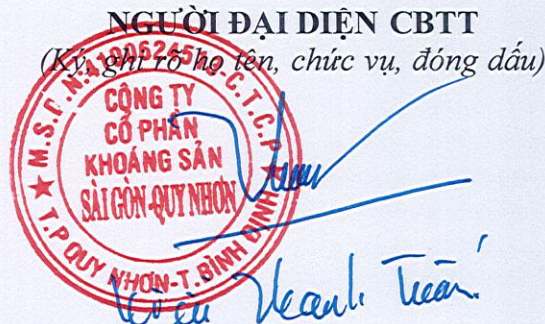 NGƯỜI ĐẠI DIỆN CBTT
(Ký, ghi rõ họ tên, chức vụ, đóng dấu)
CÔNG TY
CỔ PHẦN
KHOÁNG SẢN
SÀI GÒN-QUY NHƠN
T.P QUY NHƠN-T.BÌNH ĐỊNH
Thanh Tuấn